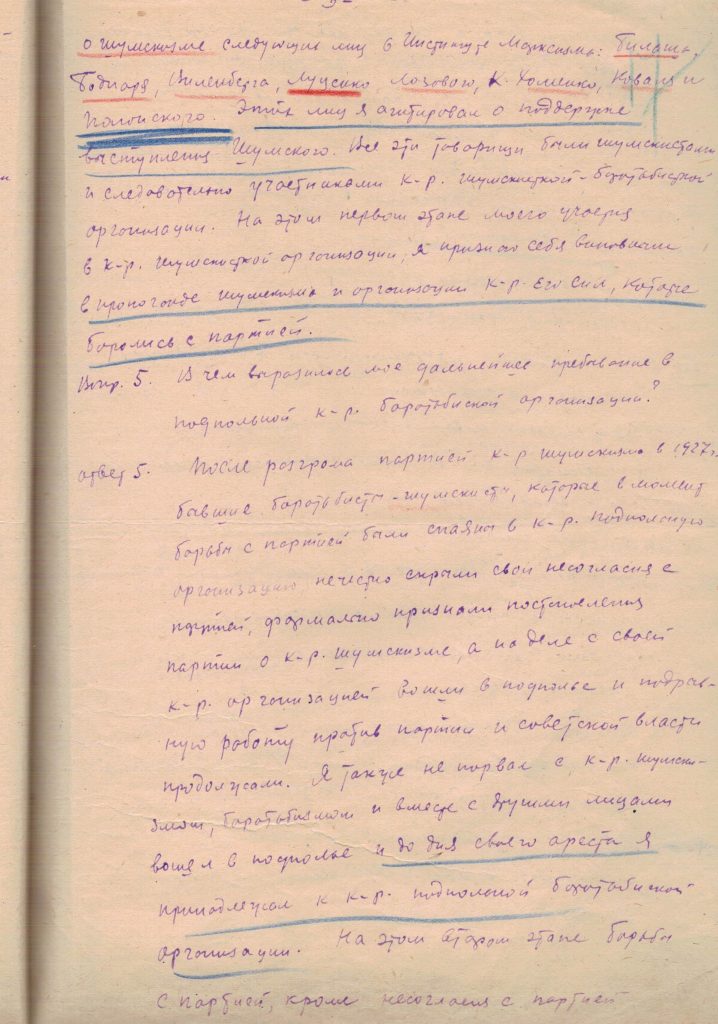 о шумскизме следующих лиц в Институте Марксизма: Билаша
Боднаря, Виленберга, Луценко Лозового, К. Хоменко, Коваля и
Полонского. Этих лиц я агитировал о поддержке
выступления Шумского. Все эти товарищи были шумскистами
и следовательно участниками к-р. шумскистской-боротьбистской
организации. На этом первом этапе моего участия
в к-р. шумскисткой организации, я признаю себя виновным
в пропоганде шумскизма и организации к-р. его сил, которые
боролись с партией.
Вопр. 5. В чем выразилось мое дальнейшее пребывание в
подпольной к-р. боротьбиской организации?
ответ 5. После розгрома партией к-р шумскизма в 1927г.
бывшие боротьбисты-шумскисты, которые в момент
борьбы с партией были спаяны в к-р. подпольную
организацию нечестно скрыли свои несогласия с
партией, формально признали постановления
партии о к-р. шумскизме, а на деле с своей
к-р. организацией вошли в подполье и подрыв-
ную роботу против партии и советской власти
продолжали. Я также не порвал с к-р. шумски-
змом, боротьбизмом и вместе с другими лицами
вошел в подполье и до дня своего ареста я
принадлежал к к-р. подпольной боротьбиской
организации. На этом втором этапе борьбы
с партией, кроме несогласия с партией